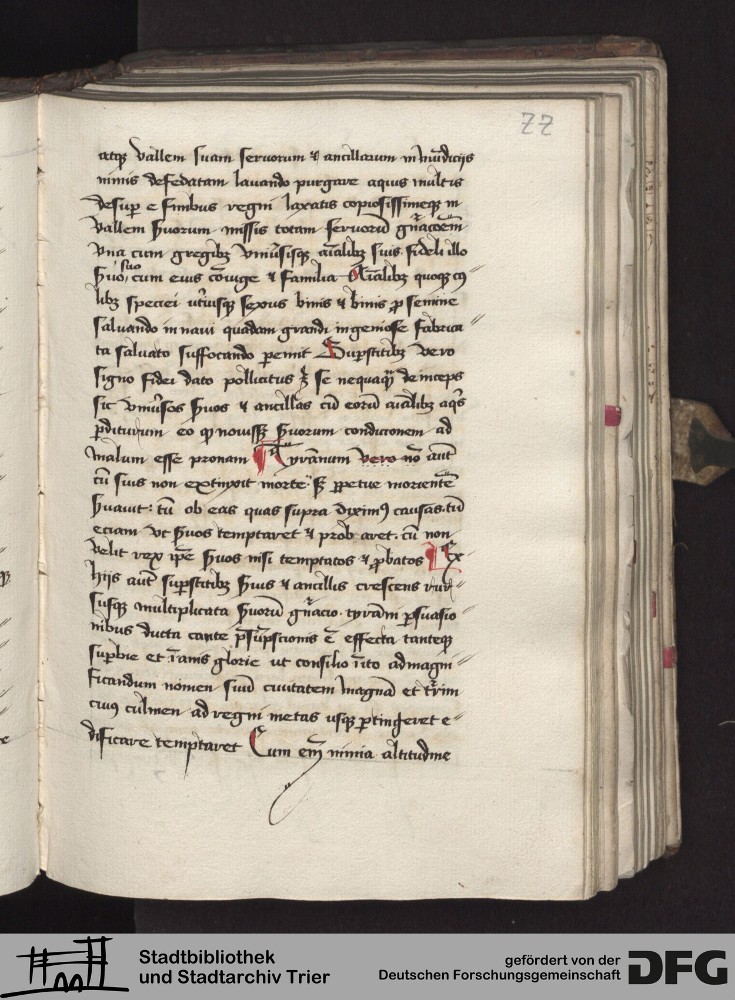 22
atqꝫ vallem suam seruorum & ancillarum inmūdicijs
nimis defedatam lauando purgare aquis multis
desup̱ e finibus regni laxatis copiosissimeqꝫ in
vallem suorum missis totam seruorū gn̄acōem
vna cum gregibꝫ vniūsisqꝫ aīalibꝫ suis fideli illo
suo cum eius cōiuge & familia Aīalibꝫ quoqꝫ cꝰ
libꝫ speciei vtriusqꝫ sexus binis & binis ꝓ semine
saluando in naui quadam grandi ingeniose fabrica
ta saluato suffocando p̱emit Sup̱stitibꝫ vero
signo fidei dato pollicitus se nequaqᷓ deinceps
sic vniūsos suos & ancillas cū eorū aīalibꝫ aq̄s
p̱diturum eo ꝙ nouissꝫ suorum condicionem ad
malum esse pronam Tyrānum vero nō aūt
cū suis non extinxit morte sꝫ p̱petue morientē
tū ob eas quas supra diximꝰ causas tū
eciam vt suos temptaret & probaret cū non
velit rex ip̄e suos nisi temptatos & ꝓbatos Ex
hijs aūt sup̱stitibꝫ suis & ancillis crescens rur
susqꝫ multiplicata suorū gn̄acio tyrāni p̱suasio
nibus ducta tante p̄sūpscionis ē effecta tanteqꝫ
sup̱bie et īanis glorie ut consilio īito ad magni
ficandum nomen suū ciuitatem magnā et tᷓrim
cuiꝰ culmen ad regni metas usqꝫ p̱tingeret e
dificare temptaret Cum em̄ nimia altitudine
Stadtbibliothek
und Stadtarchiv Trier
gefördert von der
Deutschen Forschungsgemeinschaft
DFG